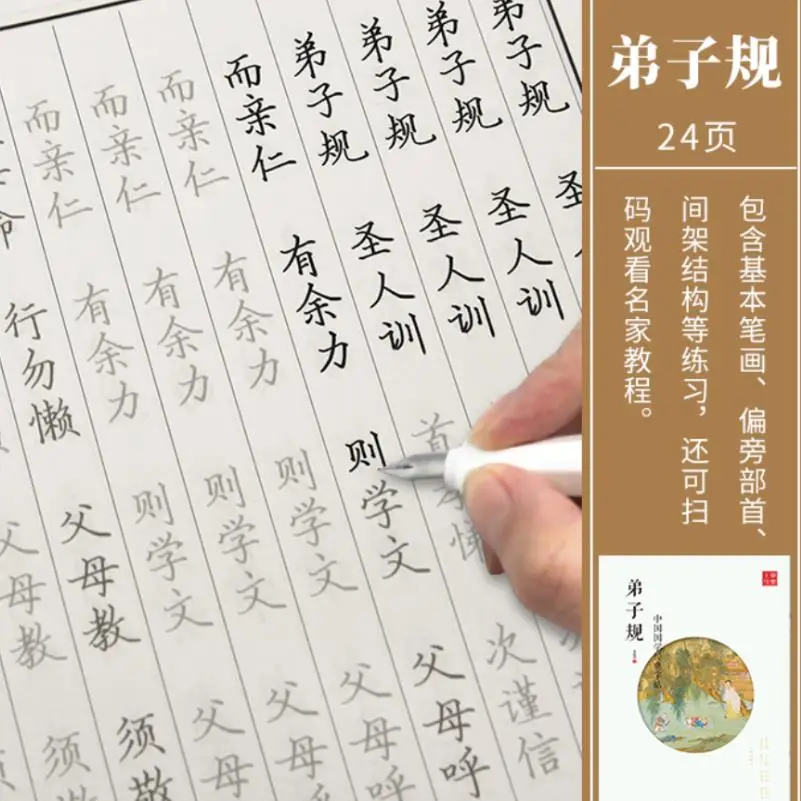 弟子规
圣
弟子规
圣人训
弟子规
圣人训
弟子规
圣人训
首
次谨信
而亲仁
有余力
则学文
父母呼
而亲仁
有余力
则学文
父母呼
而亲仁
有余力
则学文
父母呼
而亲仁
有余力
则学文
父母呼
命
行勿懒
父母教
须敬
父母教
须敬
弟子规
24页
包含基本笔画、偏旁部首、
间架结构等练习，还可扫
码观看名家教程。
弟子规